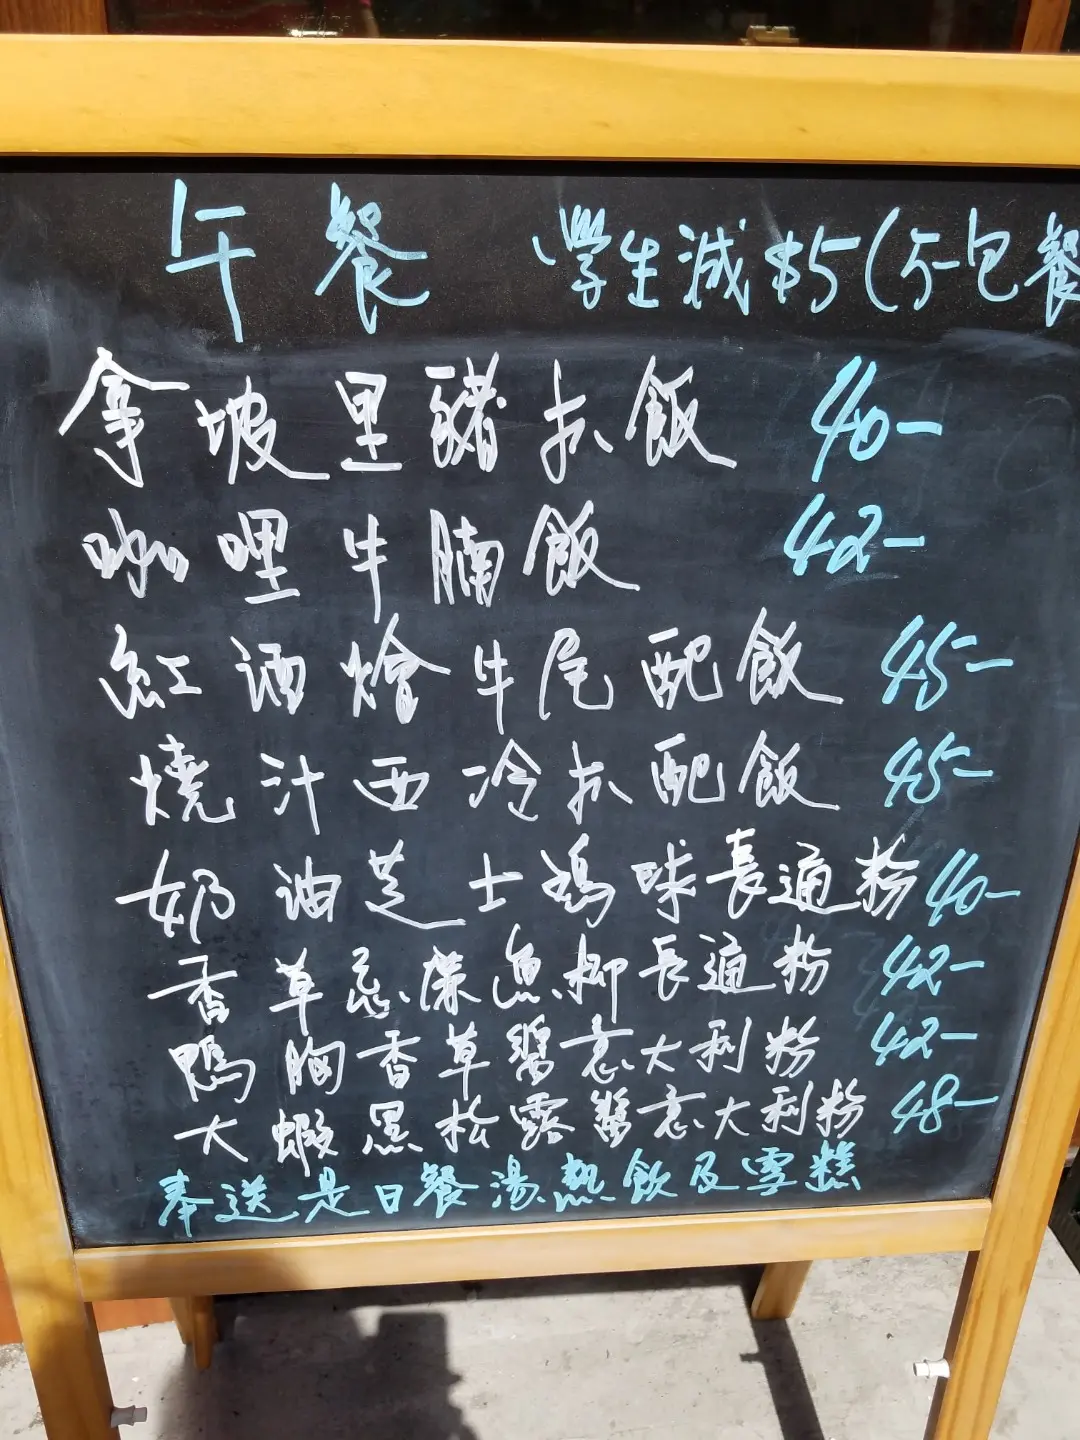 午餐 學生減$5(不包餐
拿坡里豬扒飯 40-
咖哩牛腩飯 42-
紅酒燴牛尾配飯 45-
燒汁西冷扒配飯 45-
奶油芝士鴻咪長通粉 40-
香草忌廉魚柳長通粉 42-
鴨胸香草醬意大利粉 42-
大蝦黑松露醬意大利粉 48-
奉送是日餐湯熱飲及雪糕